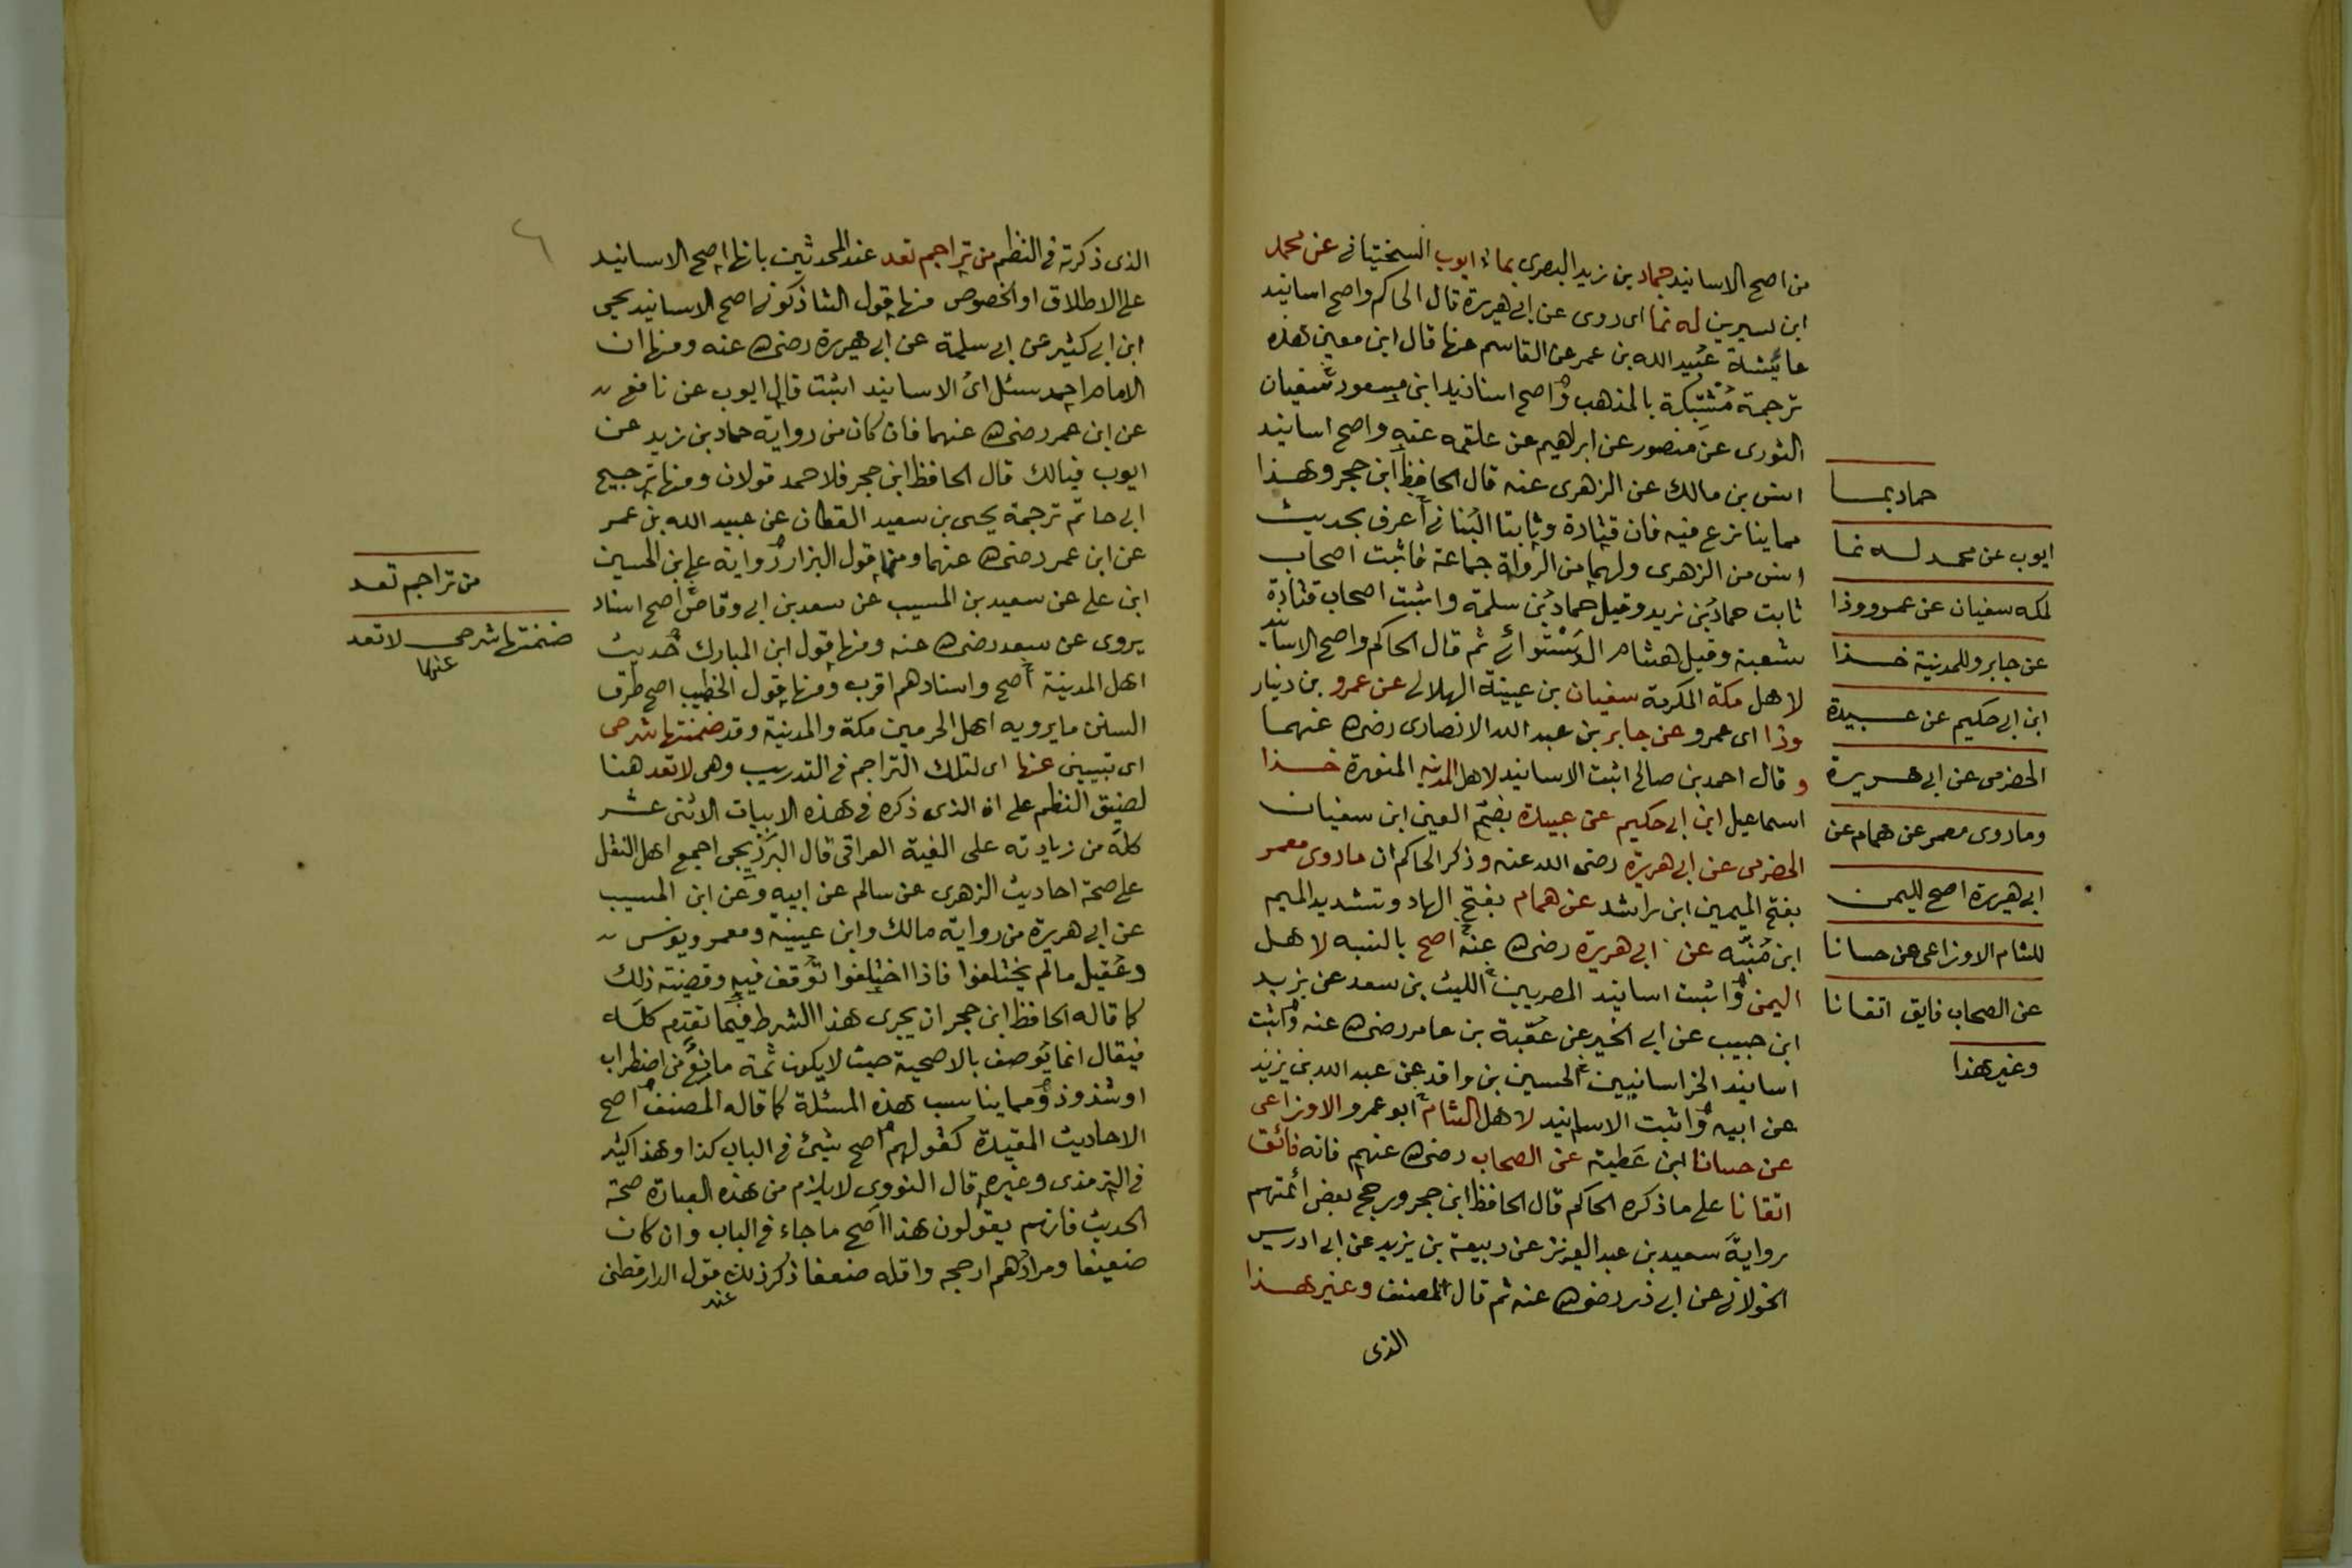 من اصح الاسانيد حماد بن زيد البصرى بما ايوب السختيانى عن محمد
ابن سيرين له نما اى روى عن ابى هريرة قال الحاكم واصح اسانيد
عائيشة عُبيد الله بن عمر عن القاسم عنها قال ابن معين هذه
ترجمة مُشَبّكة بالذهب واصح اسانيد ابن مسعود سفيان
الثورى عن منصور عن ابراهيم عن علقمه عنه واصح اسانيد
انس بن مالك عن الزهرى عنه قال الحافظ ابن حجر وهذا
مما ينازع فيه فان قتادة وثابتا البُنانى أعرف بحديث
انس من الزهرى ولهما من الرواة جماعة فاثبت اصحاب
ثابت حمادُ بن زيد وقيل حمادُ بن سلمة واثبت اصحاب قتادة
شعبة وقيل هشام الدَستَوائى ثم قال الحاكم واصح الاسانيد
لاهل مكة المكرمة سفيان بن عيينة الهلالى عن عمرو بن دينار
وذا اى عمرو عن جابر بن عبد الله الانصارى رضى الله عنهما
و قال احمد بن صالح اثبت الاسانيد لاهل المدينه المنورة خذا
اسماعيل ابن ابى حكيم عن عبيدة بضم العين ابن سفيان
الحضرمى عن ابى هريرة رضى الله عنه وذكر الحاكم ان ما روى معمر
بفتح الميمين ابن راشد عن همام بفتح الهاد وتشديد الميم
ابن مُنبّه عن ابى هريرة رضى الله عنه اصح بالنسبه لاهل
اليمن واثبت اسانيد المصريين الليث بن سعد عن يزيد
ابن حبيب عن ابى الخير عن عُقبة بن عامر رضى الله عنه واثبت
اسانيد الخراسانيين الحسين بن واقد عن عبد الله بن يزيد
عن ابيه واثبت الاسانيد لاهل الشام ابو عمرو الاوزاعى
عن حسانا ابن عَطية عن الصحاب رضى الله عنهم فانه فائق
اتقانا على ما ذكره الحاكم قال الحافظ ابن حجر ورجح بعض أئمتهم
رواية سعيد بن عبد العزيز عن ربيعة بن يزيد عن ابى ادريس
الخولانى عن ابى ذر رضى الله عنه ثم قال المصنف وغير هذا
الذى
حماد بما
ايوب عن محمد له نما
لمكه سفيان عن عمرو وذا
عن جابر وللمدينة خذا
ابن ابى حكيم عن عبيدة
الحضرمى عن ابى هريرة
وما روى معمر عن همام عن
ابى هريرة اصح لليمن
للشام الاوزاعى عن حسانا
عن الصحاب فايق اتقانا
وغير هذا
٦
الذى ذكرته فى النظم من تراجم تعد عند المحدثين بانها اصح الاسانيد
على الاطلاق او الخصوص منها قول الشاذكونى اصح الاسانيد يحيى
ابن ابى كثير عن ابى سلمة عن ابى هريرة رضى الله عنه ومنها ان
الامام احمد سئل اىُ الاسانيد اثبت قال ايوب عن نافع
عن ابن عمر رضى الله عنهما فان كان من رواية حماد بن زيد عن
ايوب فيالك قال الحافظ ابن حجر فلاحمد قولان ومنها ترجيح
ابى حاتم ترجمة يحيى بن سعيد القطان عن عبيد الله بن عمر
عن ابن عمر رضى الله عنهما ومنها قول البزار رواية على ابن الحسين
ابن على عن سعيد بن المسيب عن سعد بن ابى وقاص اصح اسناد
يروى عن سعد رضى الله عنه ومنها قول ابن المبارك حديث
اهل المدينة أصح واسنادهم اقرب ومنها قول الخطيب اصح طرق
السنن ما يرويه اهل الحرمين مكة والمدينة وقد ضمنتها شرحى
اى تبيينى عنها اى لتلك التراجم فى التدريب وهى لا تعد هنا
لضيق النظم على ان الذى ذكره فى هذه الابيات الاثنى عشر
كلَه من زيادته على الفية العراقى قال البرَذيجى اجمع اهل النقل
على صحة احاديث الزهرى عن سالم عن ابيه وعن ابن المسيب
عن ابى هريرة من رواية مالك وابن عيينة ومعمر ويونس
وعُقيل مالم يختلفوا فاذا اختلفوا توُقف فيه وقضية ذلك
كما قاله الحافظ ابن حجر ان يجرى هذا الشرط فيما تقدم كله
فيقال انما يُوصف بالاصحية حيث لا يكون ثمة مانع من اضطراب
او شذوذ ومما يناسب هذه المسئلة كما قاله المصنف اصح
الاحاديث المقيدة كقولهم اصح شيئ فى الباب كذا وهذا كثير
فى الترمذى وغيره قال النووى لا يلزم من هذه العبارة صحة
الحديث فانهم يقولون هذا اصح ما جاء فى الباب وان كان
ضعيفا ومرادُهم ارجحه واقله ضعفا ذكر ذلك عند قول الدارقطنى
من تراجم تعد
ضمنتها شرحى لا تعد
عنها